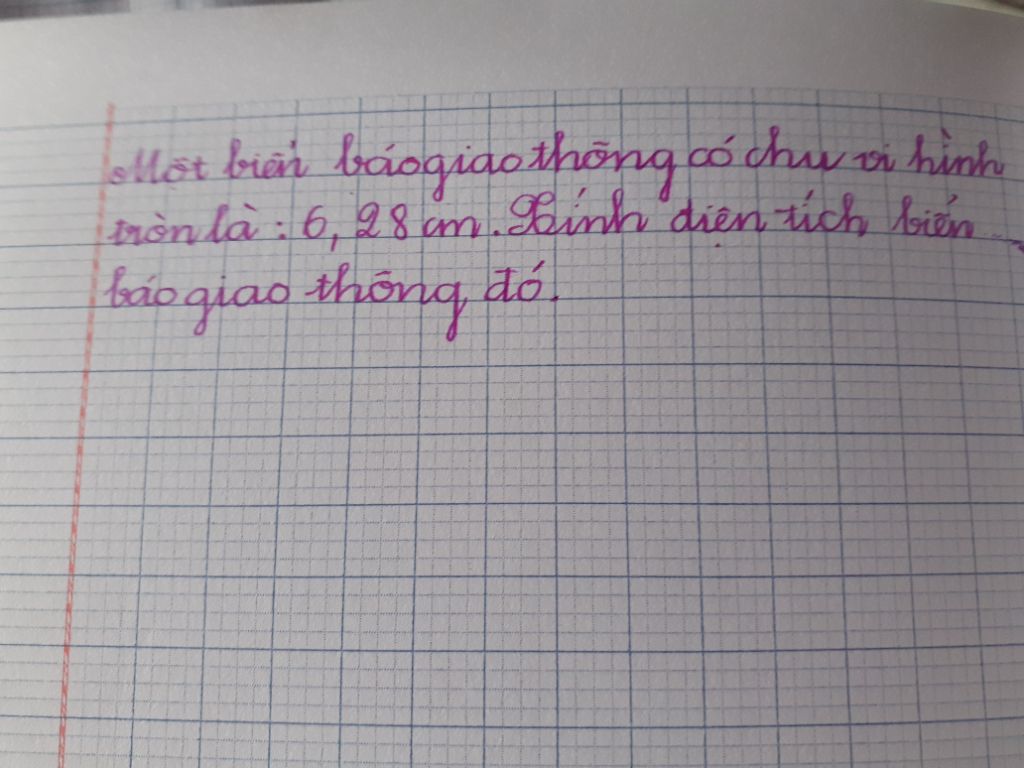 Một biển báo giao thông có chu vi hình
tròn là: 6,28 cm. Tính diện tích biển
báo giao thông đó.